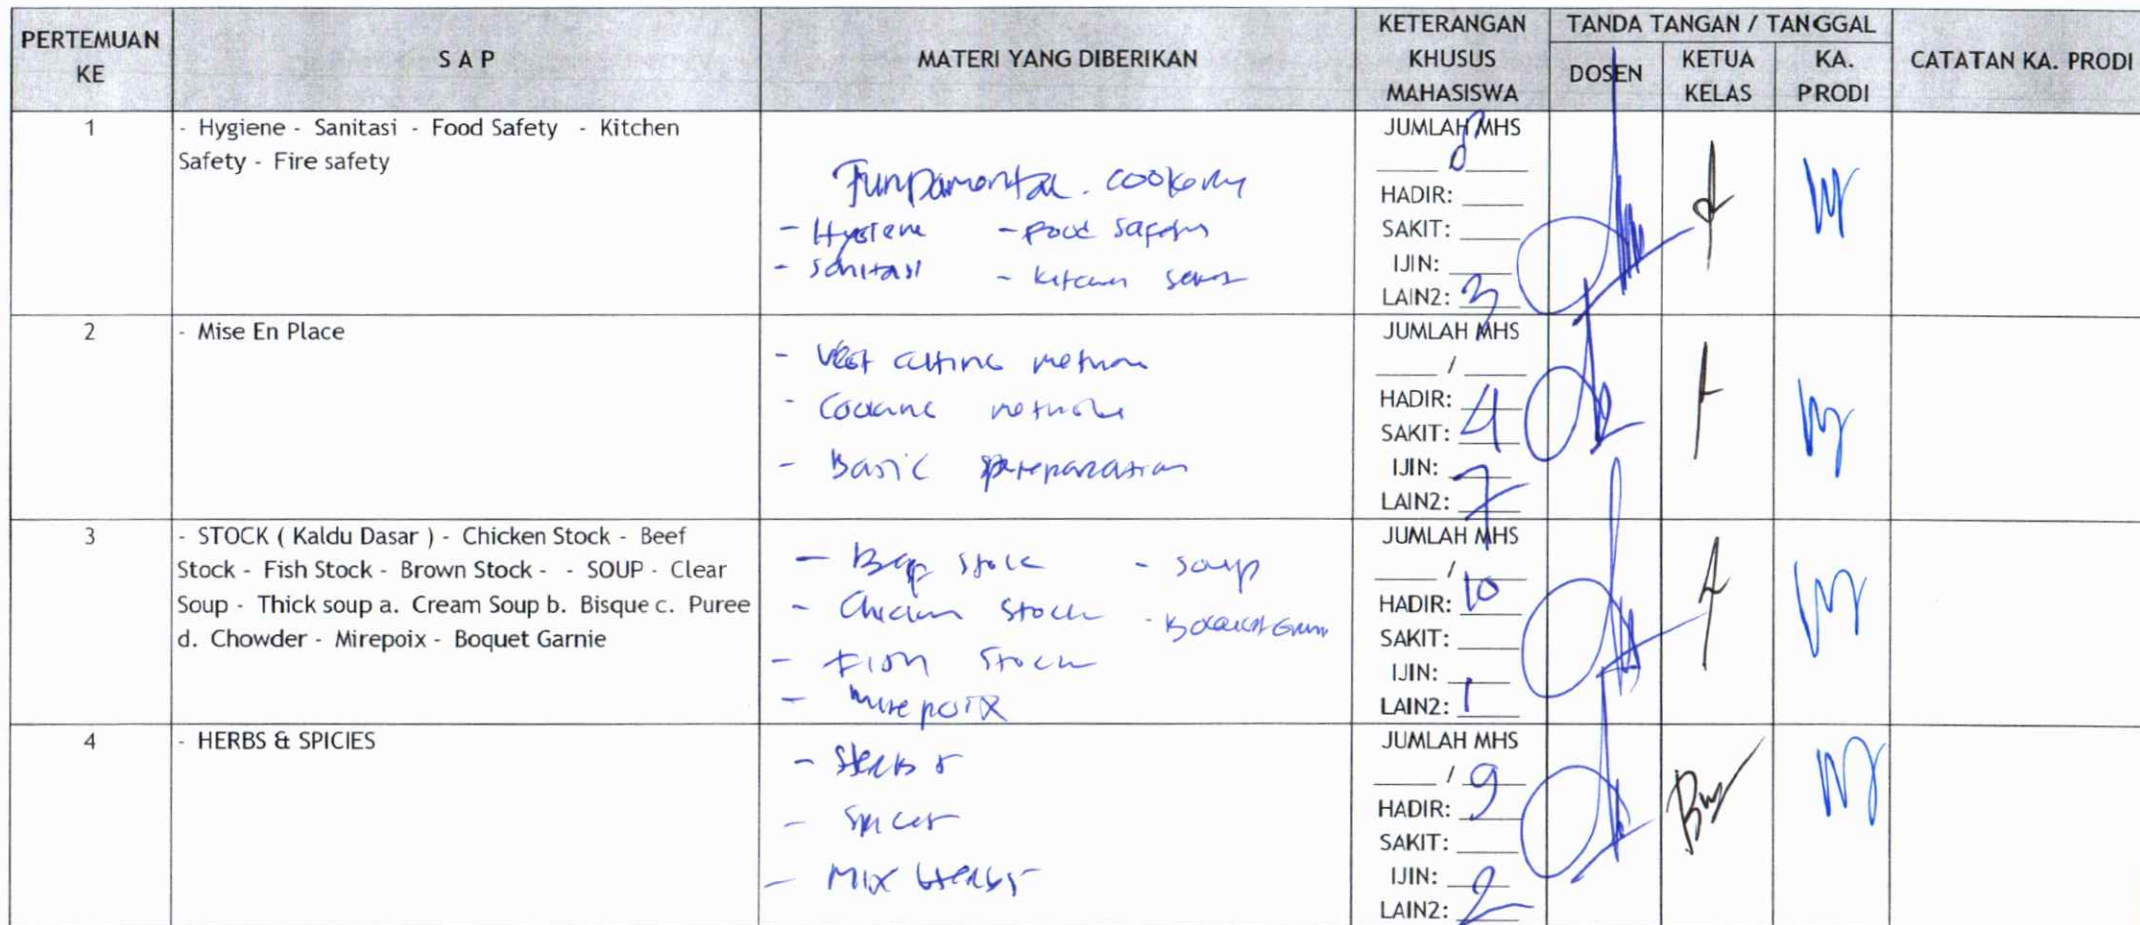 PERTEMUAN KE
S A P
MATERI YANG DIBERIKAN
KETERANGAN KHUSUS MAHASISWA
TANDA TANGAN / TANGGAL
DOSEN
KETUA KELAS
KA. PRODI
CATATAN KA. PRODI
1
- Hygiene - Sanitasi - Food Safety - Kitchen
Safety - Fire safety
- Hygiene
- Food Safety
- Sanitasi
- Kitchen
JUMLAH MHS
8
HADIR:
SAKIT:
IJIN:
LAIN2: 3
2
- Mise En Place
- Basic preparation
JUMLAH MHS
/
HADIR: 4
SAKIT:
IJIN:
LAIN2: 7
3
- STOCK ( Kaldu Dasar ) - Chicken Stock - Beef
Stock - Fish Stock - Brown Stock - - SOUP - Clear
Soup - Thick soup a. Cream Soup b. Bisque c. Puree
d. Chowder - Mirepoix - Boquet Garnie
- Beef Stock
- Soup
- Chicken Stock
- Fish Stock
- Mirepoix
JUMLAH MHS
/ 10
HADIR:
SAKIT:
IJIN:
LAIN2: 1
4
- HERBS & SPICIES
- Herbs &
- Spices
- Mix Herbs
JUMLAH MHS
/ 9
HADIR:
SAKIT:
IJIN:
LAIN2: 2